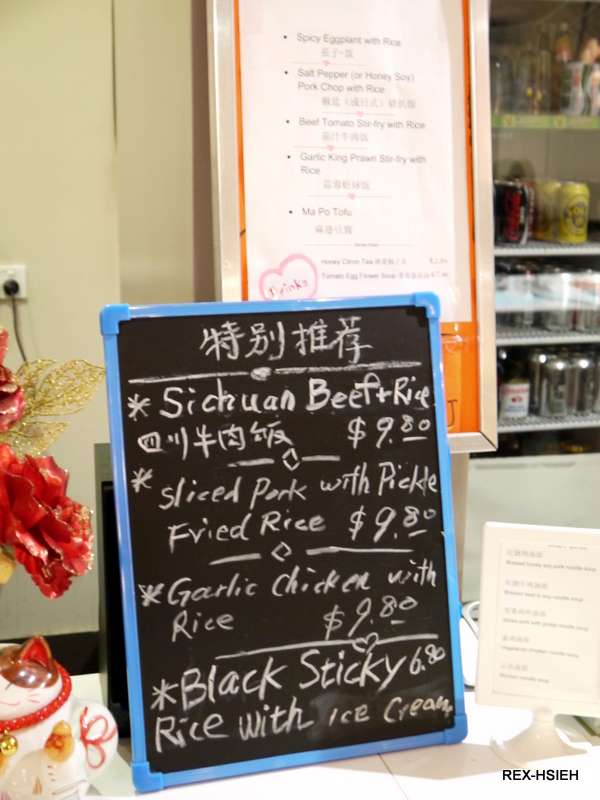 • Spicy Eggplant with Rice
茄子饭
• Salt Pepper (or Honey Soy)
Pork Chop with Rice
椒盐（或日式）猪扒饭
• Beef Tomato Stir-fry with Rice
茄汁牛肉饭
• Garlic King Prawn Stir-fry with
Rice
蒜蓉虾球饭
• Ma Po Tofu
麻婆豆腐
Honey Citron Tea 蜂蜜柚子茶
Tomato Egg Flower Soup
Drinks
特别推荐
* Sichuan Beef+Rice
四川牛肉饭 $9.80
* Sliced Pork with Pickle
Fried Rice $9.80
* Garlic Chicken with
Rice $9.80
* Black Sticky 6.80
Rice with Ice Cream
红烧肉汤面
Braised honey soy pork noodle soup
红烧牛肉汤面
Braised beef in soy noodle soup
雪菜肉丝汤面
Sliced pork with pickle noodle soup
素鸡汤面
Vegetarian chicken noodle soup
云吞汤面
Wonton noodle soup
REX-HSIEH